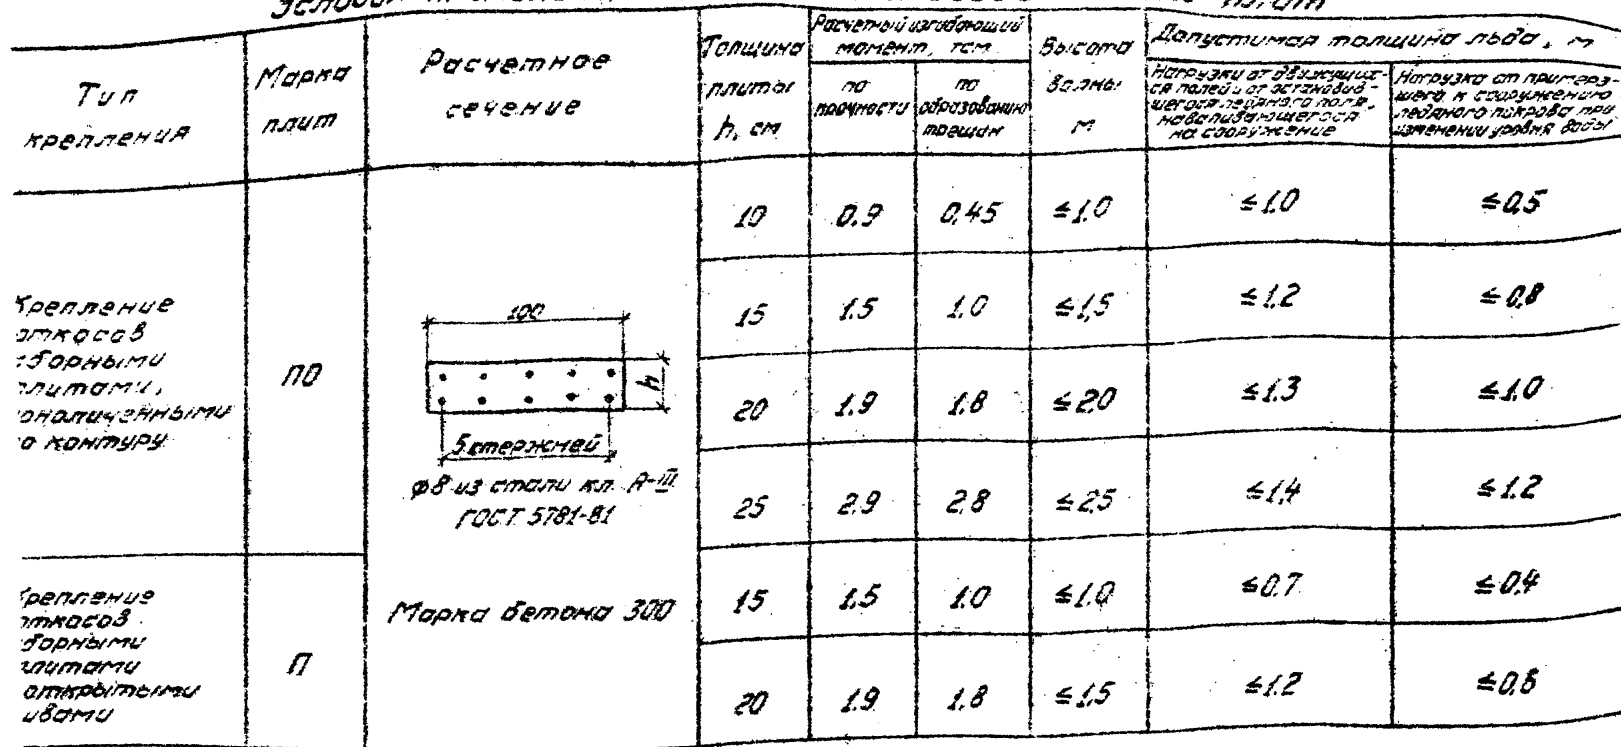 Тип
крепления
Марка
плит
Расчетное
сечение
Толщина
плиты
h, см
Расчетный изгибающий
момент, тсм
по
прочности
по
образованию
трещин
Высота
волны
м
Допустимая толщина льда, м
Нагрузки от движущих-
ся полей и от остановив-
шегося ледяного поля,
наваливающегося
на сооружение
Нагрузка от примерз-
шего к сооружению
ледяного покрова при
изменении уровня воды
Крепление
откосов
сборными
плитами,
омоноличенными
по контуру
ПО
100
h
5 стержней
φ8 из стали кл. А-III
ГОСТ 5781-81
Марка бетона 300
10 0.9 0,45 ≤1.0 ≤1.0 ≤0,5
15 1.5 1.0 ≤1,5 ≤1.2 ≤0,8
20 1.9 1.8 ≤2.0 ≤1.3 ≤1.0
25 2.9 2.8 ≤2,5 ≤1,4 ≤1.2
крепление
откосов
сборными
плитами
открытыми
швами
П
15 1.5 1.0 ≤1.0 ≤0.7 ≤0,4
20 1.9 1.8 ≤1.5 ≤1.2